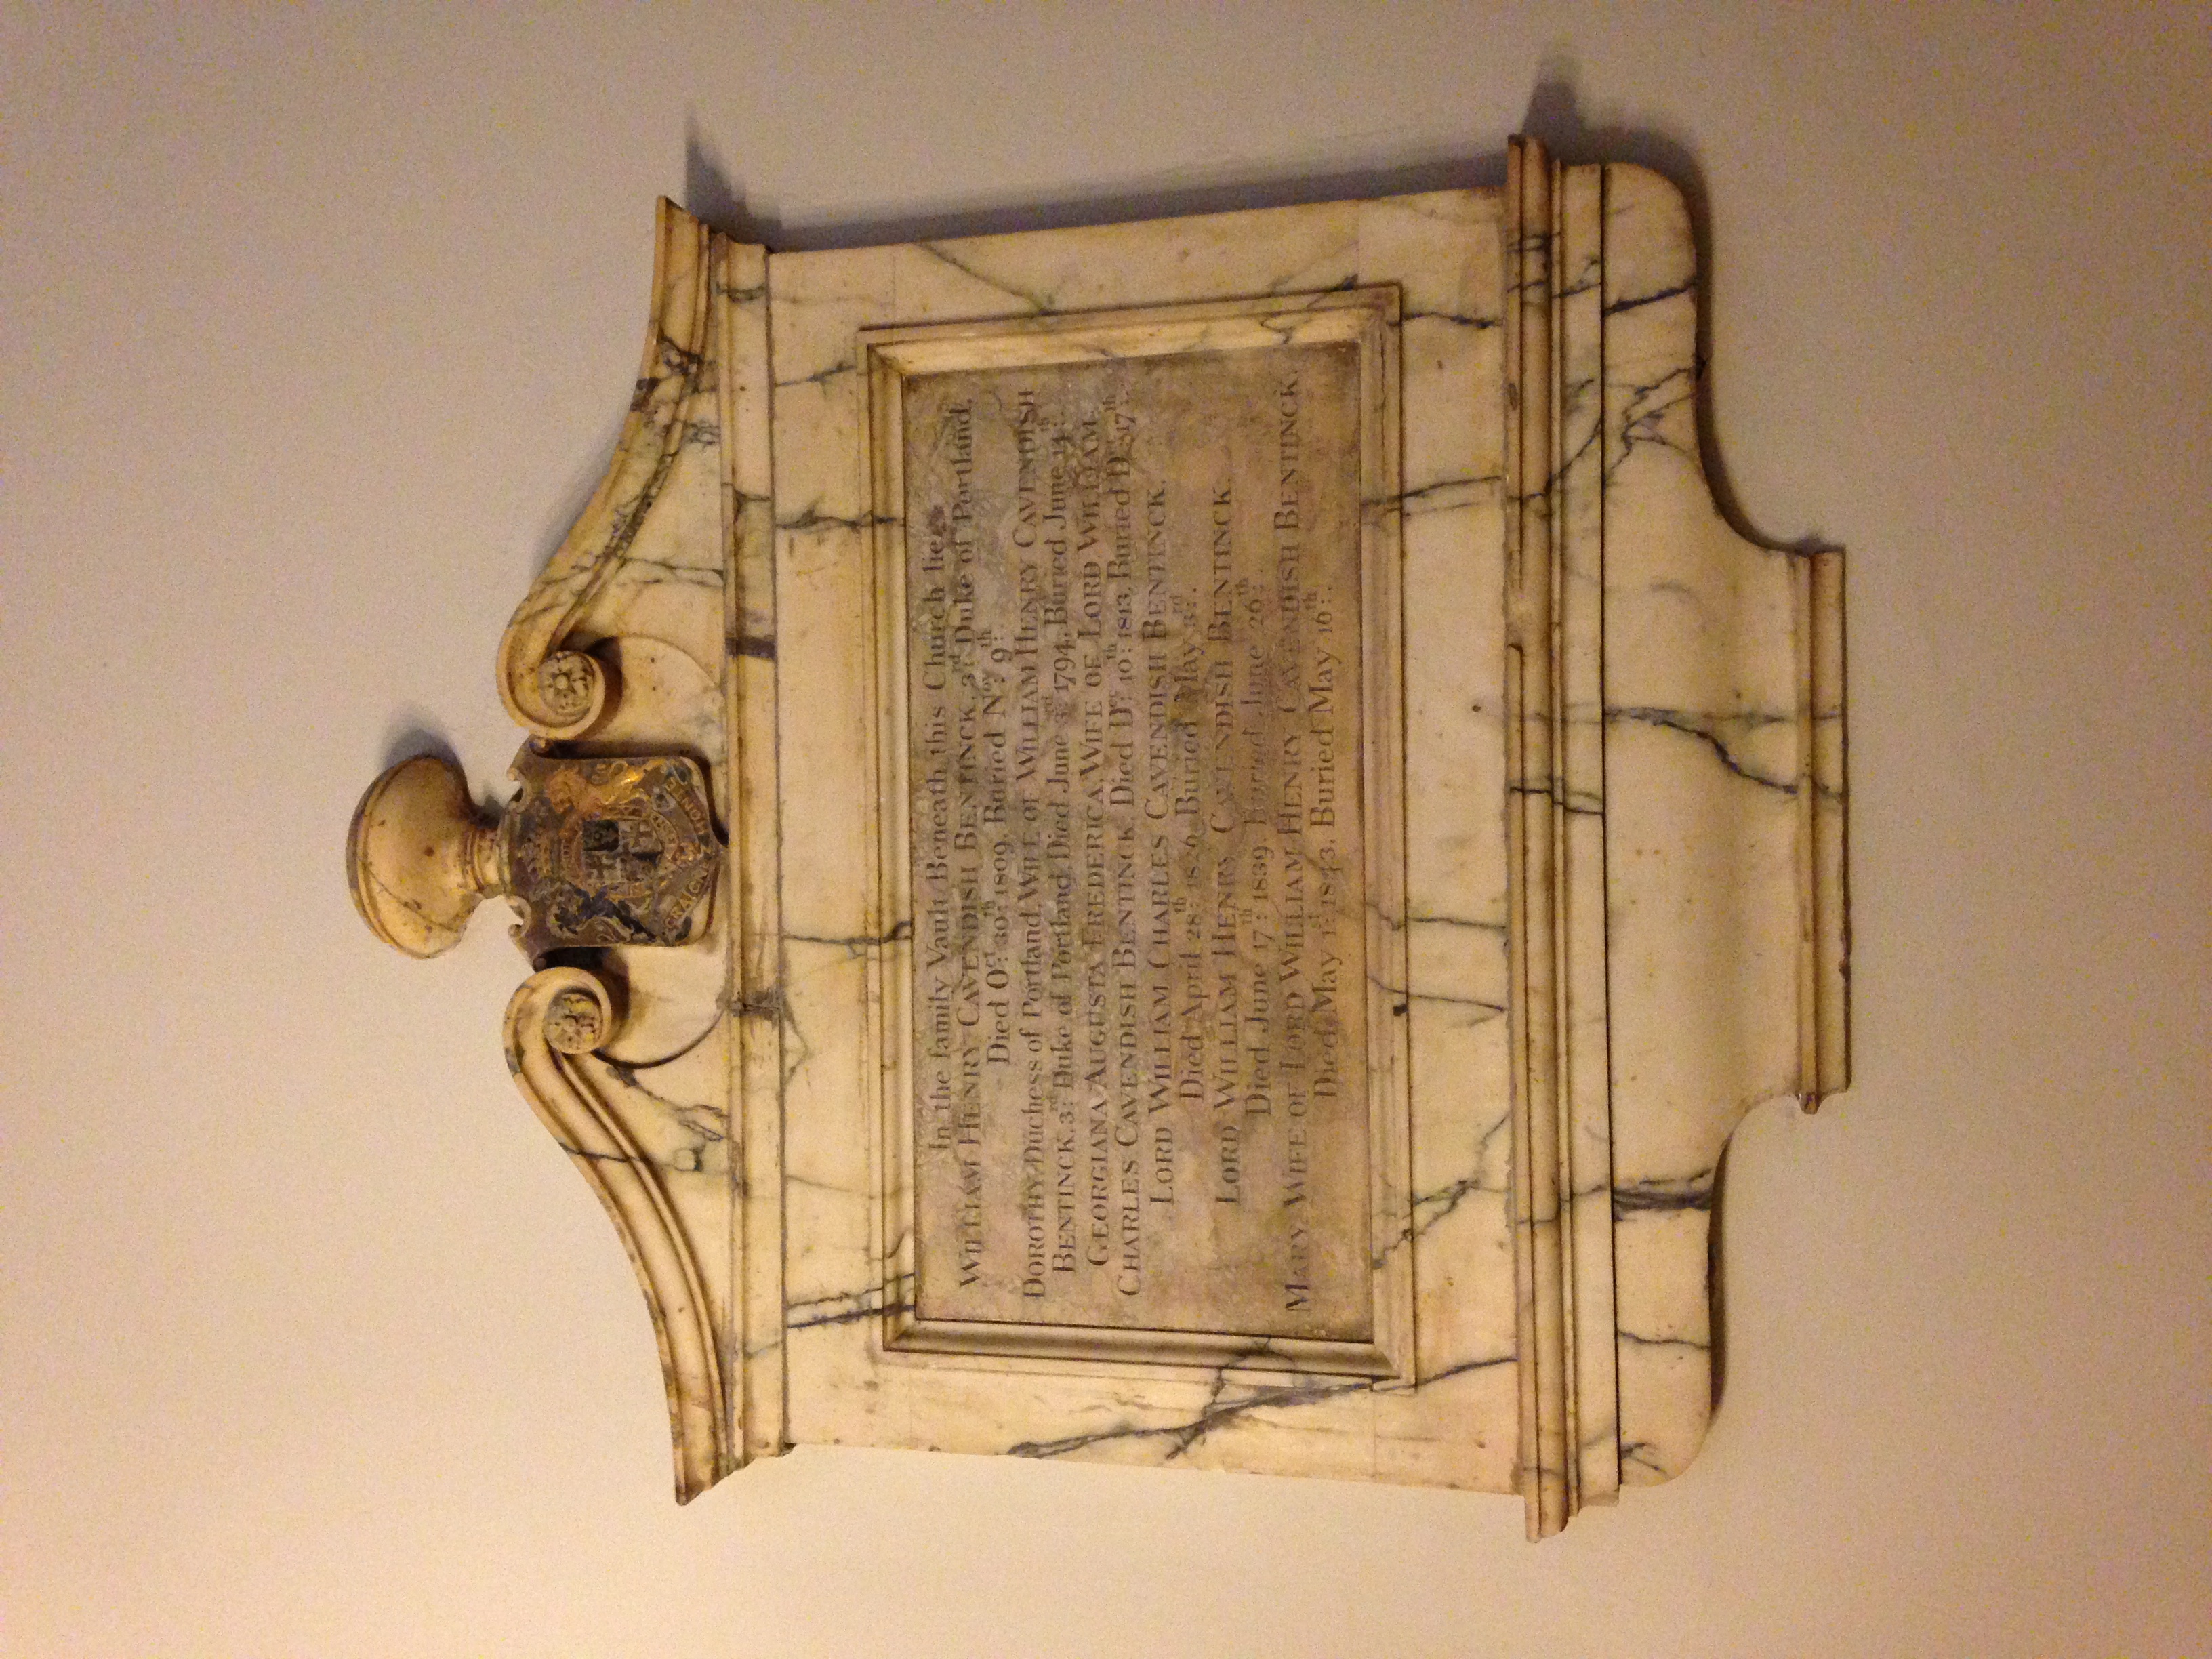 CRAIGNEZ HONTE
In the family Vault Beneath this Church lie,
WILLIAM HENRY CAVENDISH BENTINCK, 3rd Duke of Portland,
Died Oct 30th 1809, Buried Nov 9th.
DOROTHY, Duchess of Portland, WIFE OF WILLIAM HENRY CAVENDISH
BENTINCK, 3rd Duke of Portland, Died June 3rd 1794, Buried June 14th.
GEORGIANA AUGUSTA FREDERICA, WIFE OF LORD WILLIAM
CHARLES CAVENDISH BENTINCK, Died Dec 10th 1813, Buried Dec 17th.
LORD WILLIAM CHARLES CAVENDISH BENTINCK.
Died April 28th 1826, Buried May 3rd.
LORD WILLIAM HENRY CAVENDISH BENTINCK.
Died June 17th 1839, Buried June 26th.
MARY, WIFE OF LORD WILLIAM HENRY CAVENDISH BENTINCK.
Died May 1st 1843, Buried May 16th.